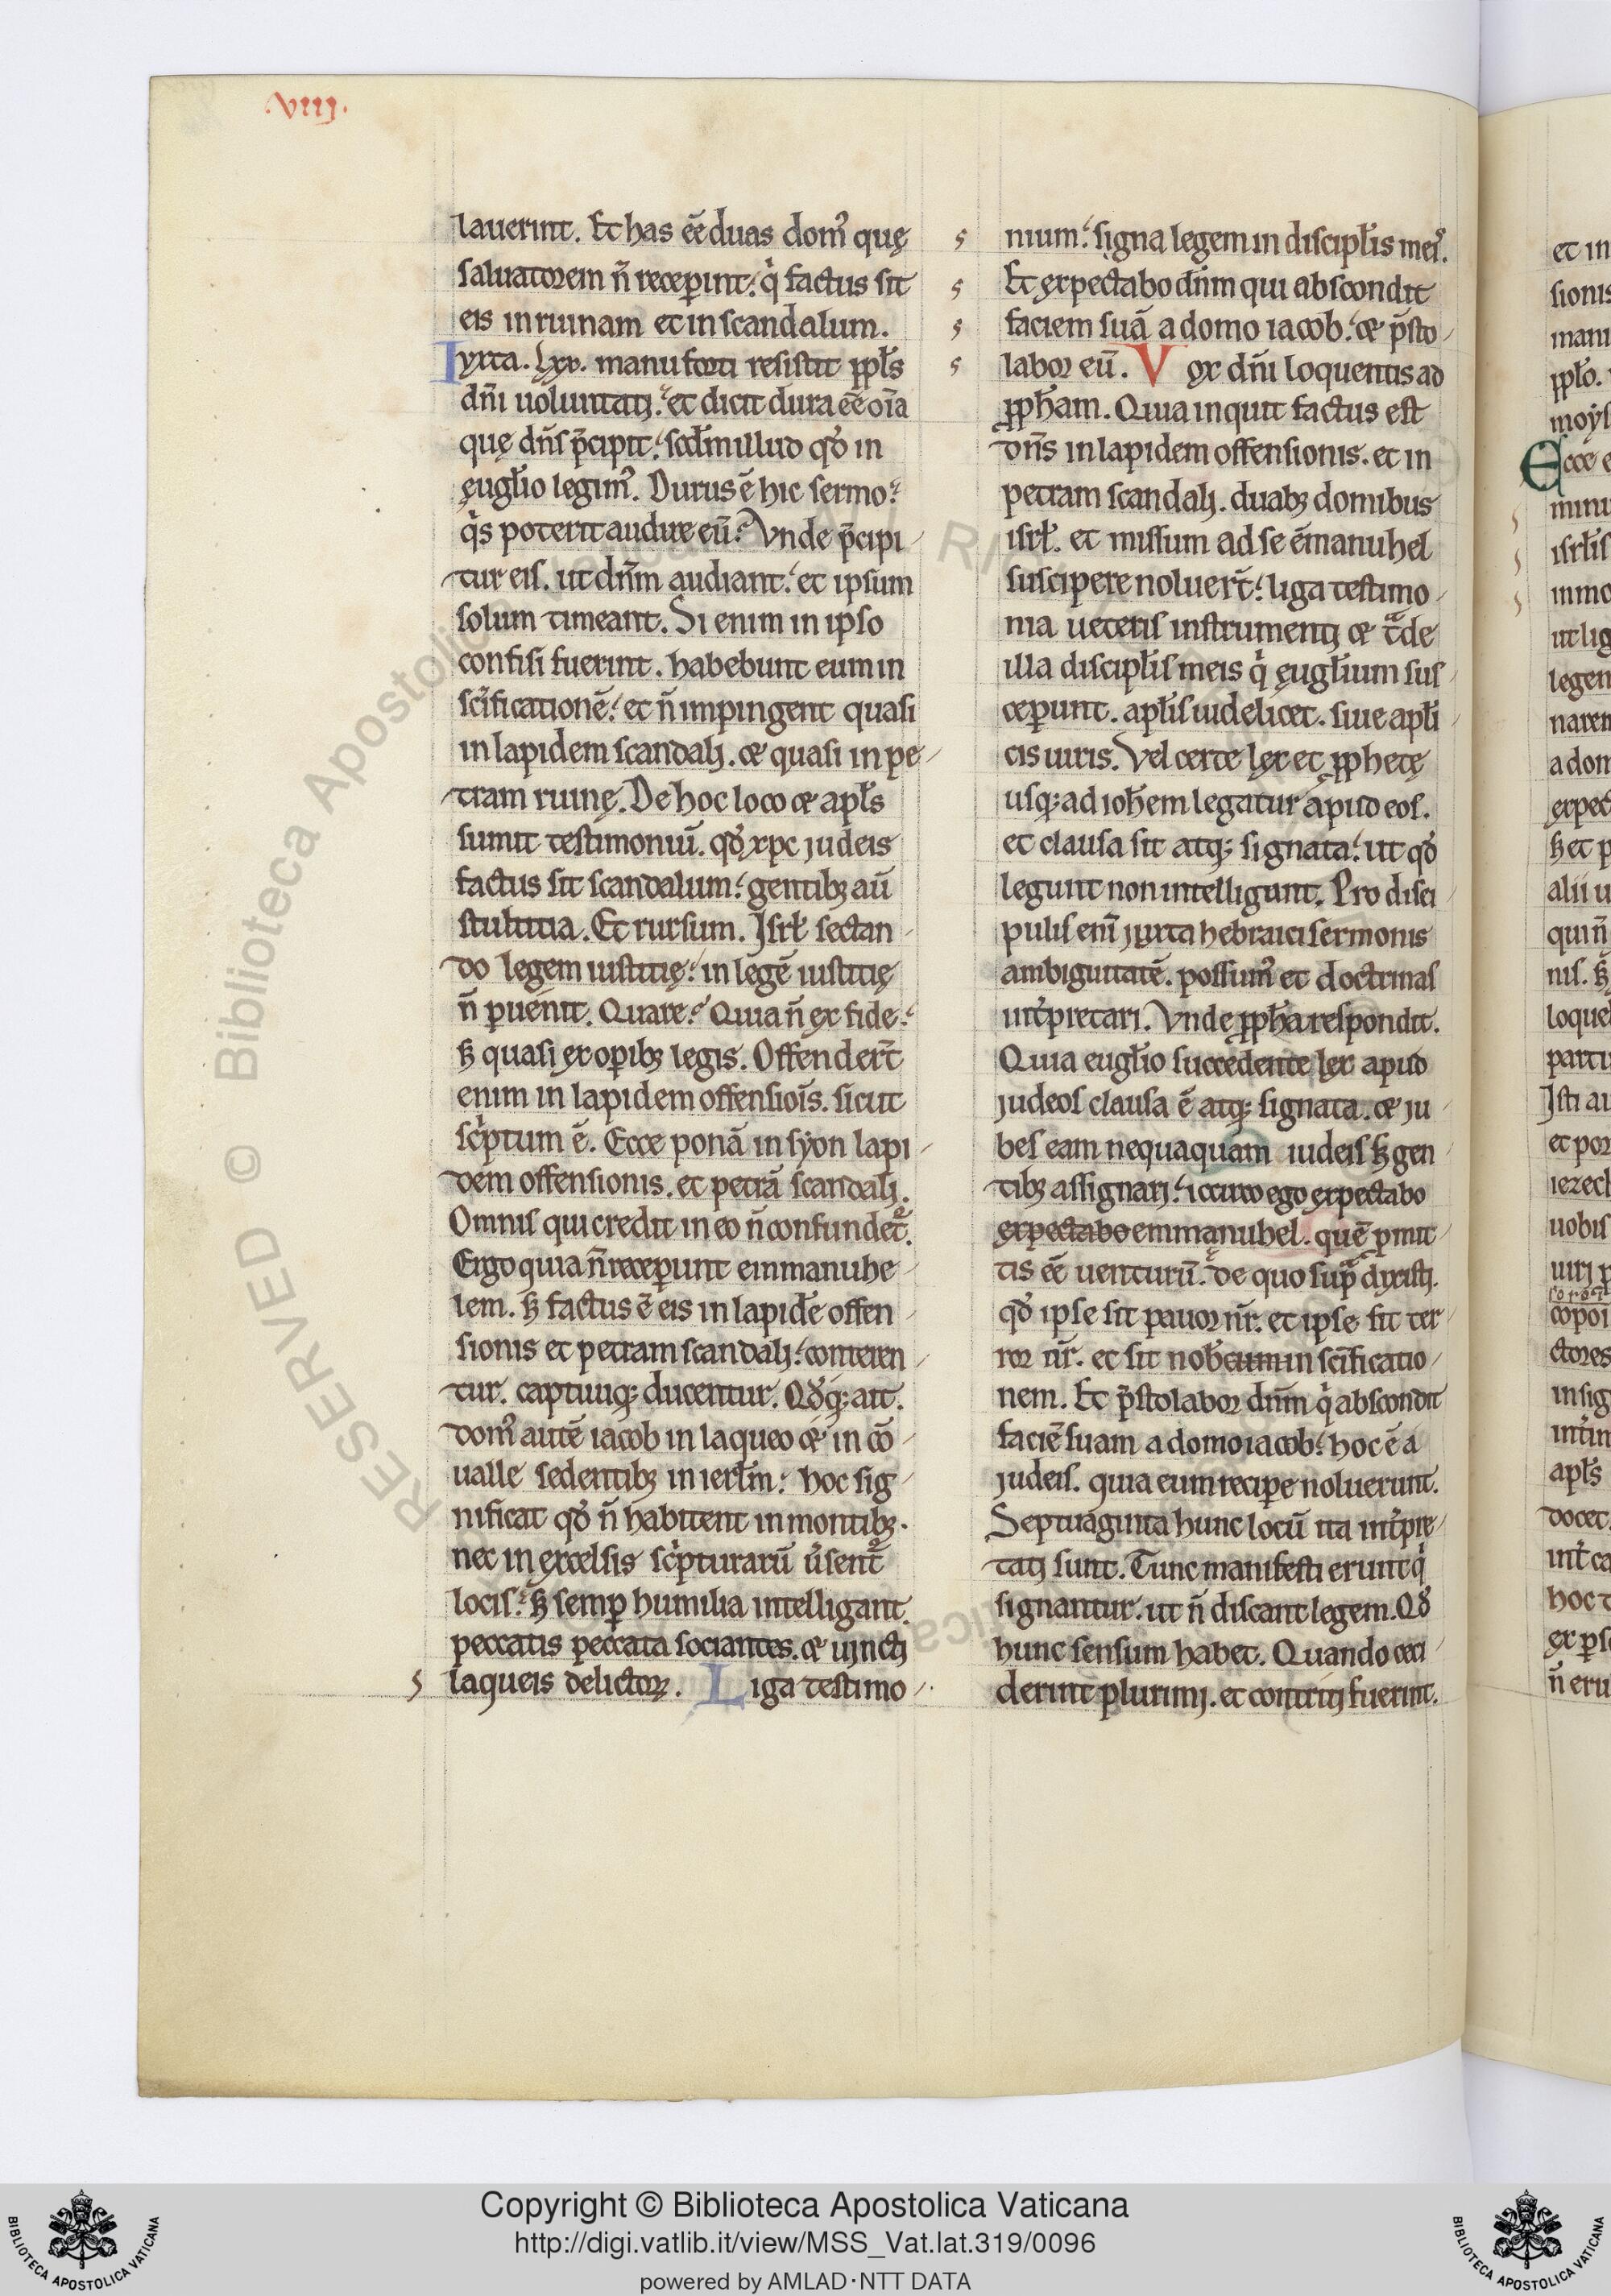 .VIIJ.
lauerint. Et has ēe duas dom᷒ quę
saluatorem ñ receꝑint. q̇ factus sit
eis in ruinam et in scandalum.
Iuxta. Lxx. manu forti resistit ppl̄s
dn̄i uoluntatj. et dicit dura ēe oīa
quę dn̄s p̄cipit. scd̄m illud qđ in
ęuglīo legim᷒. Durus ē hic sermo.
q̇s poterit audire eū? Vnde p̄cipi
tur eis. ut dn̄m audiant. et ipsum
solum timeant. Si enim in ipso
confisi fuerint. habebunt eum in
sc̄ificationē. et ñ impingent quasi
in lapidem scandalj. & quasi in pe
tram ruinę. De hoc loco & apl̄s
sumit testimoniū. qđ xpc judeis
factus sit scandalum. gentibꝫ aū
stultitia. Et rursum. Isrł sectan
do legem iustitię. in legē iustitię
ñ puenit. Quare? Quia ñ ex fide.
sꝫ quasi ex opibꝫ legis. Offender̄t
enim in lapidem offensiois̄. sicut
sc̍ptum ē. Ecce ponā in syon lapi
dem offensionis. et petrā scandalj.
Omnis qui credit in eo ñ confundet᷑.
Ergo quia ñ receꝑunt emmanuhe
lem. sꝫ factus ē eis in lapidē offen
sionis et petram scandalj. conteren
tur. captiuiqꝫ ducentur. Qđqꝫ ait.
dom᷒ autē iacob in laqueo & in cō
ualle sedentibꝫ in ierl̄m. hoc sig
nificat qđ ñ habitent in montibꝫ.
nec in excelsis sc̍pturarū u̓sent᷑
locis. sꝫ semꝑ humilia intelligant.
peccatis peccata sociantes. & uinctj
laqueis delictoꝝ. Liga testimo
nium. signa legem in discipl̄is meis̓.
Et expectabo dn̄m qui abscondit
faciem suā a domo iacob. & p̄sto
labor eū. Vox dn̄i loquentis ad
ꝓph̄am. Quia inquit factus est
dn̄s in lapidem offensionis. et in
petram scandalj. duabꝫ domibus
isrł. et missum ad se ēmanuhel
suscipere noluer̄t. liga testimo
nia ueteris instrumentj & tͣde
illa discipl̄is meis q̇ ęugl̄ium sus
ceꝑunt. apl̄is uidelicet. siue apl̄i
cis uiris. Vel certe lex et ꝓphetę
usqꝫ ad ioh̄em legatur apud eos.
et clausa sit atqꝫ signata. ut qđ
legunt non intelligunt. Pro disci
pulis eni̅ juxta hebraici sermonis
ambiguitatē. possum᷒ et doctrinas
int̓pretari. Vnde ꝓph̄a respondit.
Quia euglīo succedente lex apud
judeos clausa ē atqꝫ signata. & ju
bes eam nequaquam iudeis sꝫ gen
tibꝫ assignarj. iccirco ego expectabo
expectabo emmanuhel. quē ꝓmit
tis ēe uenturū. de quo supͣ dixistj.
qđ ipse sit pauor nr̄. et ipse sit ter
ror nr̄. et sit nob̄ cum in sc̄ificatio
nem. Et p̄stolabor dn̄m q̇ abscondit
faciē suam a domo iacob. hoc ē a
judeis. quia eum recipe noluerunt.
Septuaginta hunc locū ita int̓pre
tatj sunt. Tunc manifesti erunt q̇
signantur. ut ñ discant legem. Qđ
hunc sensum habet. Quando ceci
derint plurimj. et contritj fuerint.
Copyright © Biblioteca Apostolica Vaticana
http://digi.vatlib.it/view/MSS_Vat.lat.319/0096
powered by AMLAD·NTT DATA